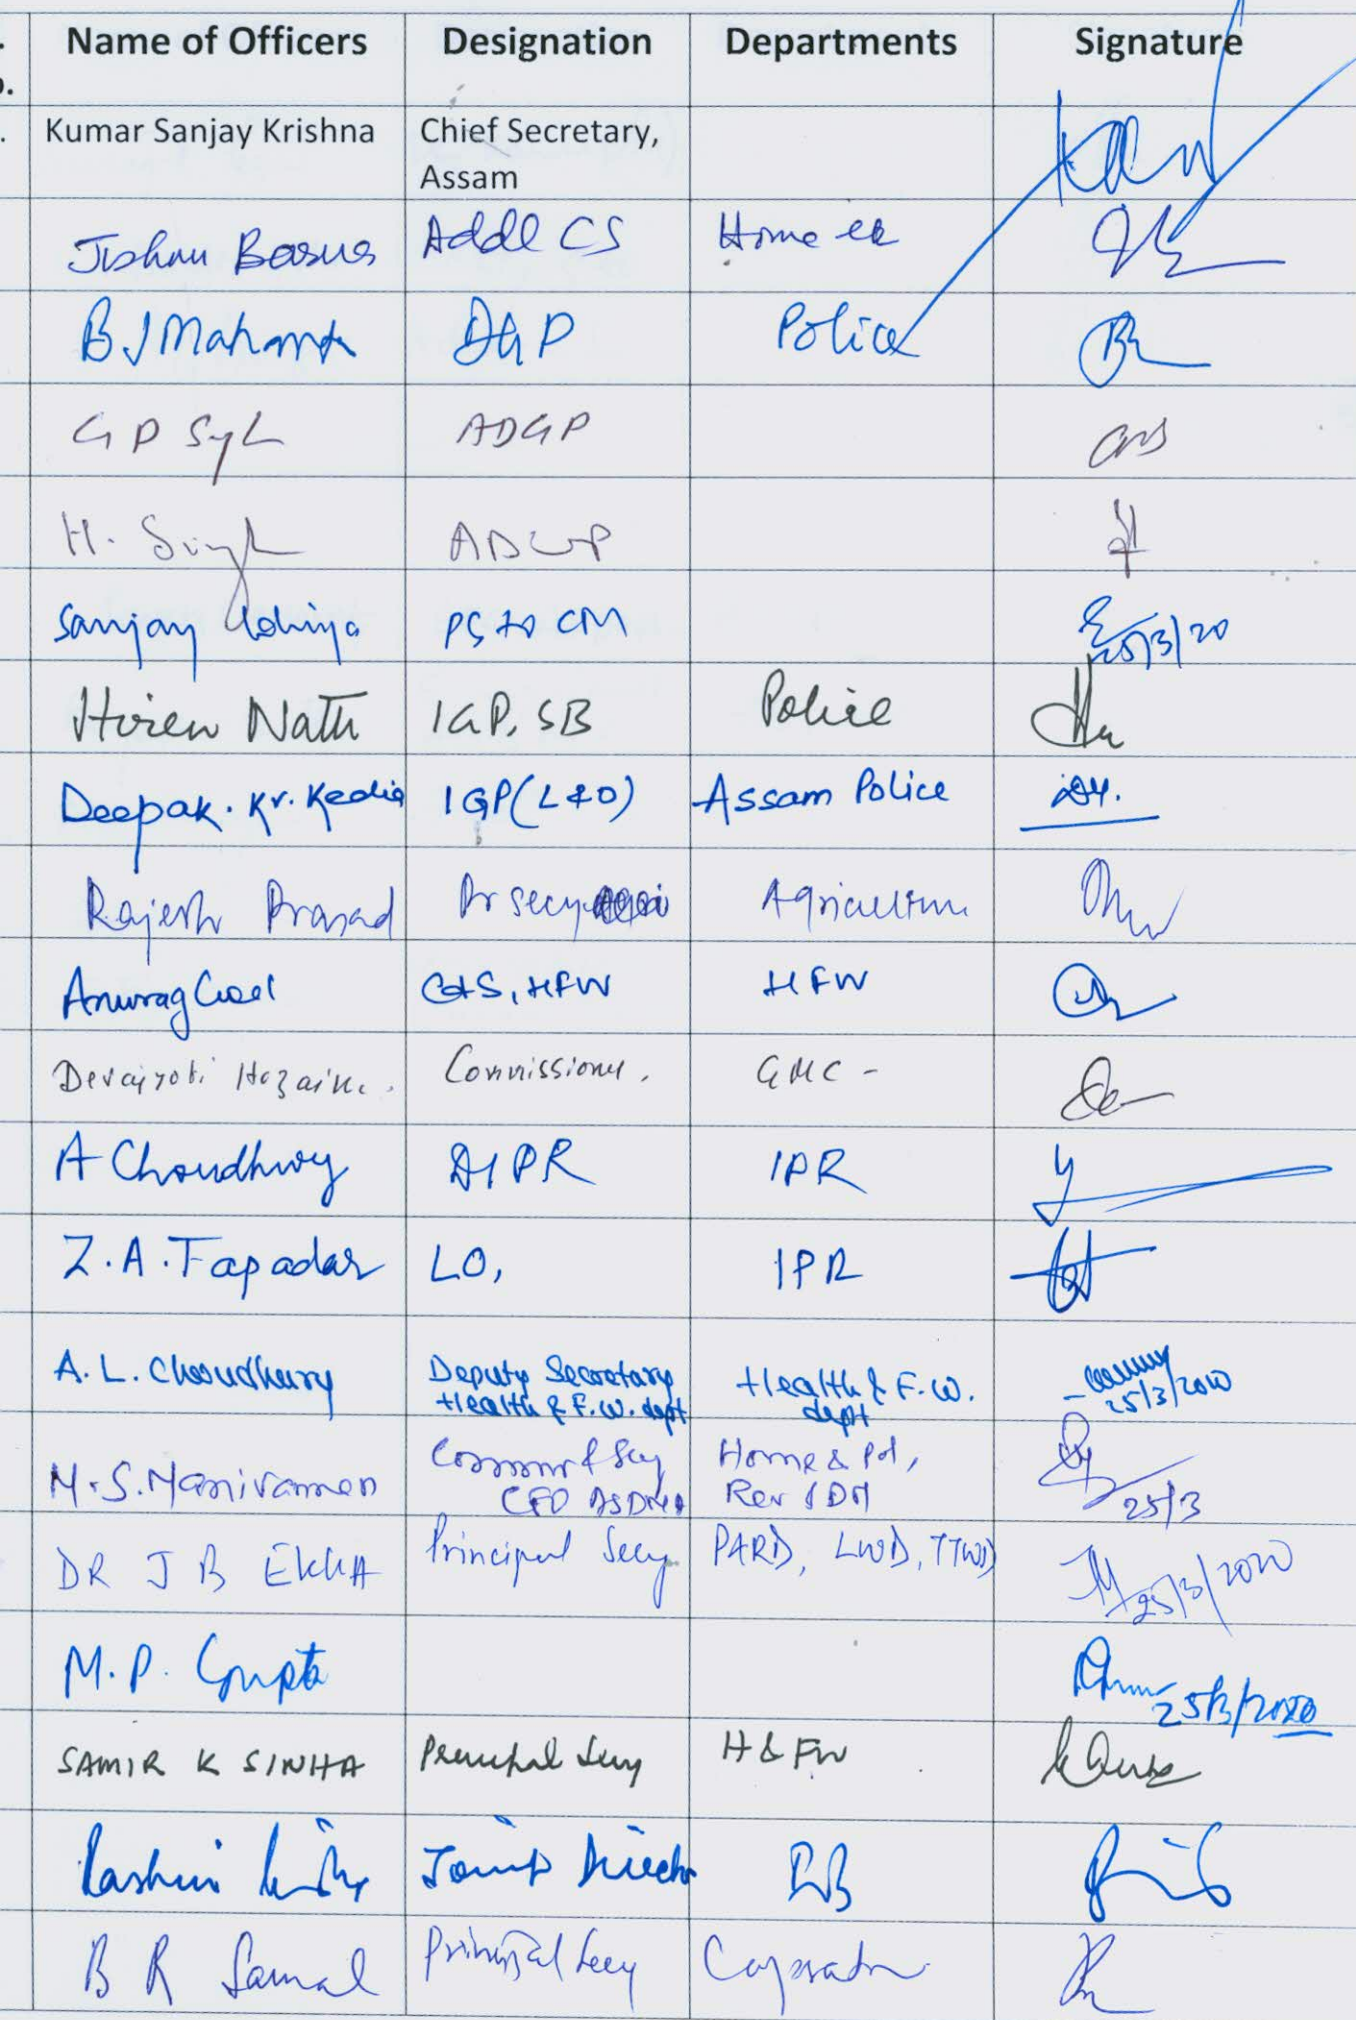 Name of Officers Designation Departments Signature
Kumar Sanjay Krishna Chief Secretary,
Assam
Jishnu Barua Addl CS Home
B J Mahanta DGP Police
G P Singh ADGP
H. Singh ADGP
Sanjay Lohiya PS to CM 25/3/20
Hiren Nath IGP, SB Police
Deepak. Kr. Kedia IGP (L&O) Assam Police
Rajesh Prasad Pr secy Agriculture
Anurag Goel C&S, HFW HFW
Devajyoti Hazarika. Commissioner. GMC -
A Choudhury DIPR IPR
Z.A. Tapadar LO, IPR
A. L. Choudhury Deputy Secretary Health & F.W.
Health & F.W. dept dept 25/3/2020
M.S. Manivannan Comm & Secy Home & Pol,
CEO ASDMA Rev & DM 25/3
DR J B EKKA Principal Secy PARD, LWD, TTWD 25/3/2020
M.P. Gupta 25/3/2020
SAMIR K SINHA Principal Secy H & FW
Joint Director
B R Samal Principal Secy Cooperation